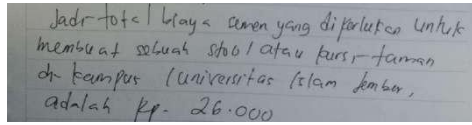 Jadi total biaya semen yang diperlukan untuk
membuat sebuah stool atau kursi taman
di kampus Universitas Islam Jember,
adalah Rp. 26.000